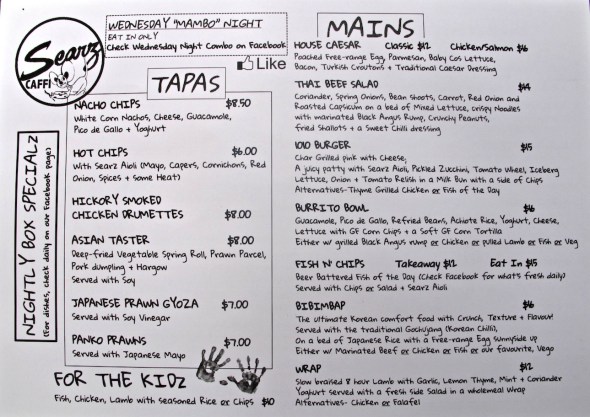 Searz
CAFFI
WEDNESDAY "MAMBO" NIGHT
EAT IN ONLY
Check Wednesday Night Combo on Facebook
Like
NIGHTLY BOX SPECIALZ
(For dishes, check daily on our Facebook page)
TAPAS
NACHO CHIPS $8.50
White Corn Nachos, Cheese, Guacamole,
Pico de Gallo + Yoghurt
HOT CHIPS $6.00
With Searz Aioli (Mayo, Capers, Cornichons, Red
Onion, Spices + some Heat)
HICKORY SMOKED
CHICKEN DRUMETTES $8.00
ASIAN TASTER $8.00
Deep-fried Vegetable Spring Roll, Prawn Parcel,
Pork dumpling + Hargow
Served with Soy
JAPANESE PRAWN GYOZA $7.00
Served with Soy Vinegar
PANKO PRAWNS $7.00
Served with Japanese Mayo
FOR THE KIDZ
Fish, Chicken, Lamb with seasoned Rice or Chips $10
MAINS
HOUSE CAESAR Classic $12 Chicken/Salmon
Poached Free-range Egg, Parmesan, Baby Cos Lettuce,
Bacon, Turkish Croutons + Traditional Caesar Dressing
THAI BEEF SALAD
Coriander, Spring Onions, Bean shoots, Carrot, Red Onion and
Roasted Capsicum on a bed of Mixed Lettuce, crispy Noodles
with marinated Black Angus Rump, Crunchy Peanuts,
fried Shallots + a Sweet Chilli dressing
1010 BURGER $15
Char Grilled pink with Cheese,
A juicy patty with Searz Aioli, Pickled Zucchini, Tomato Wheel, Iceberg
Lettuce, Onion + Tomato Relish in a Milk Bun with a side of Chips
Alternatives-Thyme Grilled Chicken or Fish of the Day
BURRITO BOWL
Guacamole, Pico de Gallo, Refried Beans, Achiote Rice, Yoghurt, Cheese,
Lettuce with GF Corn Chips + a Soft GF Corn Tortilla
Either w/ grilled Black Angus rump or Chicken or pulled Lamb or Fish or Veg
FISH N' CHIPS Takeaway $12 Eat In $15
Beer Battered Fish of the Day (Check Facebook for what's fresh daily)
Served with Chips or Salad + Searz Aioli
BIBIMBAP
The ultimate Korean comfort food with Crunch, Texture + Flavour!
Served with the traditional Gochujang (Korean Chilli),
On a bed of Japanese Rice with a Free-range Egg sunnyside up
Either w/ Marinated Beef or Chicken or Fish or our favourite, Vego
WRAP $12
Slow braised 8 hour Lamb with Garlic, Lemon Thyme, Mint + Coriander
Yoghurt served with a fresh side Salad in a wholemeal Wrap
Alternatives- Chicken or Falafel